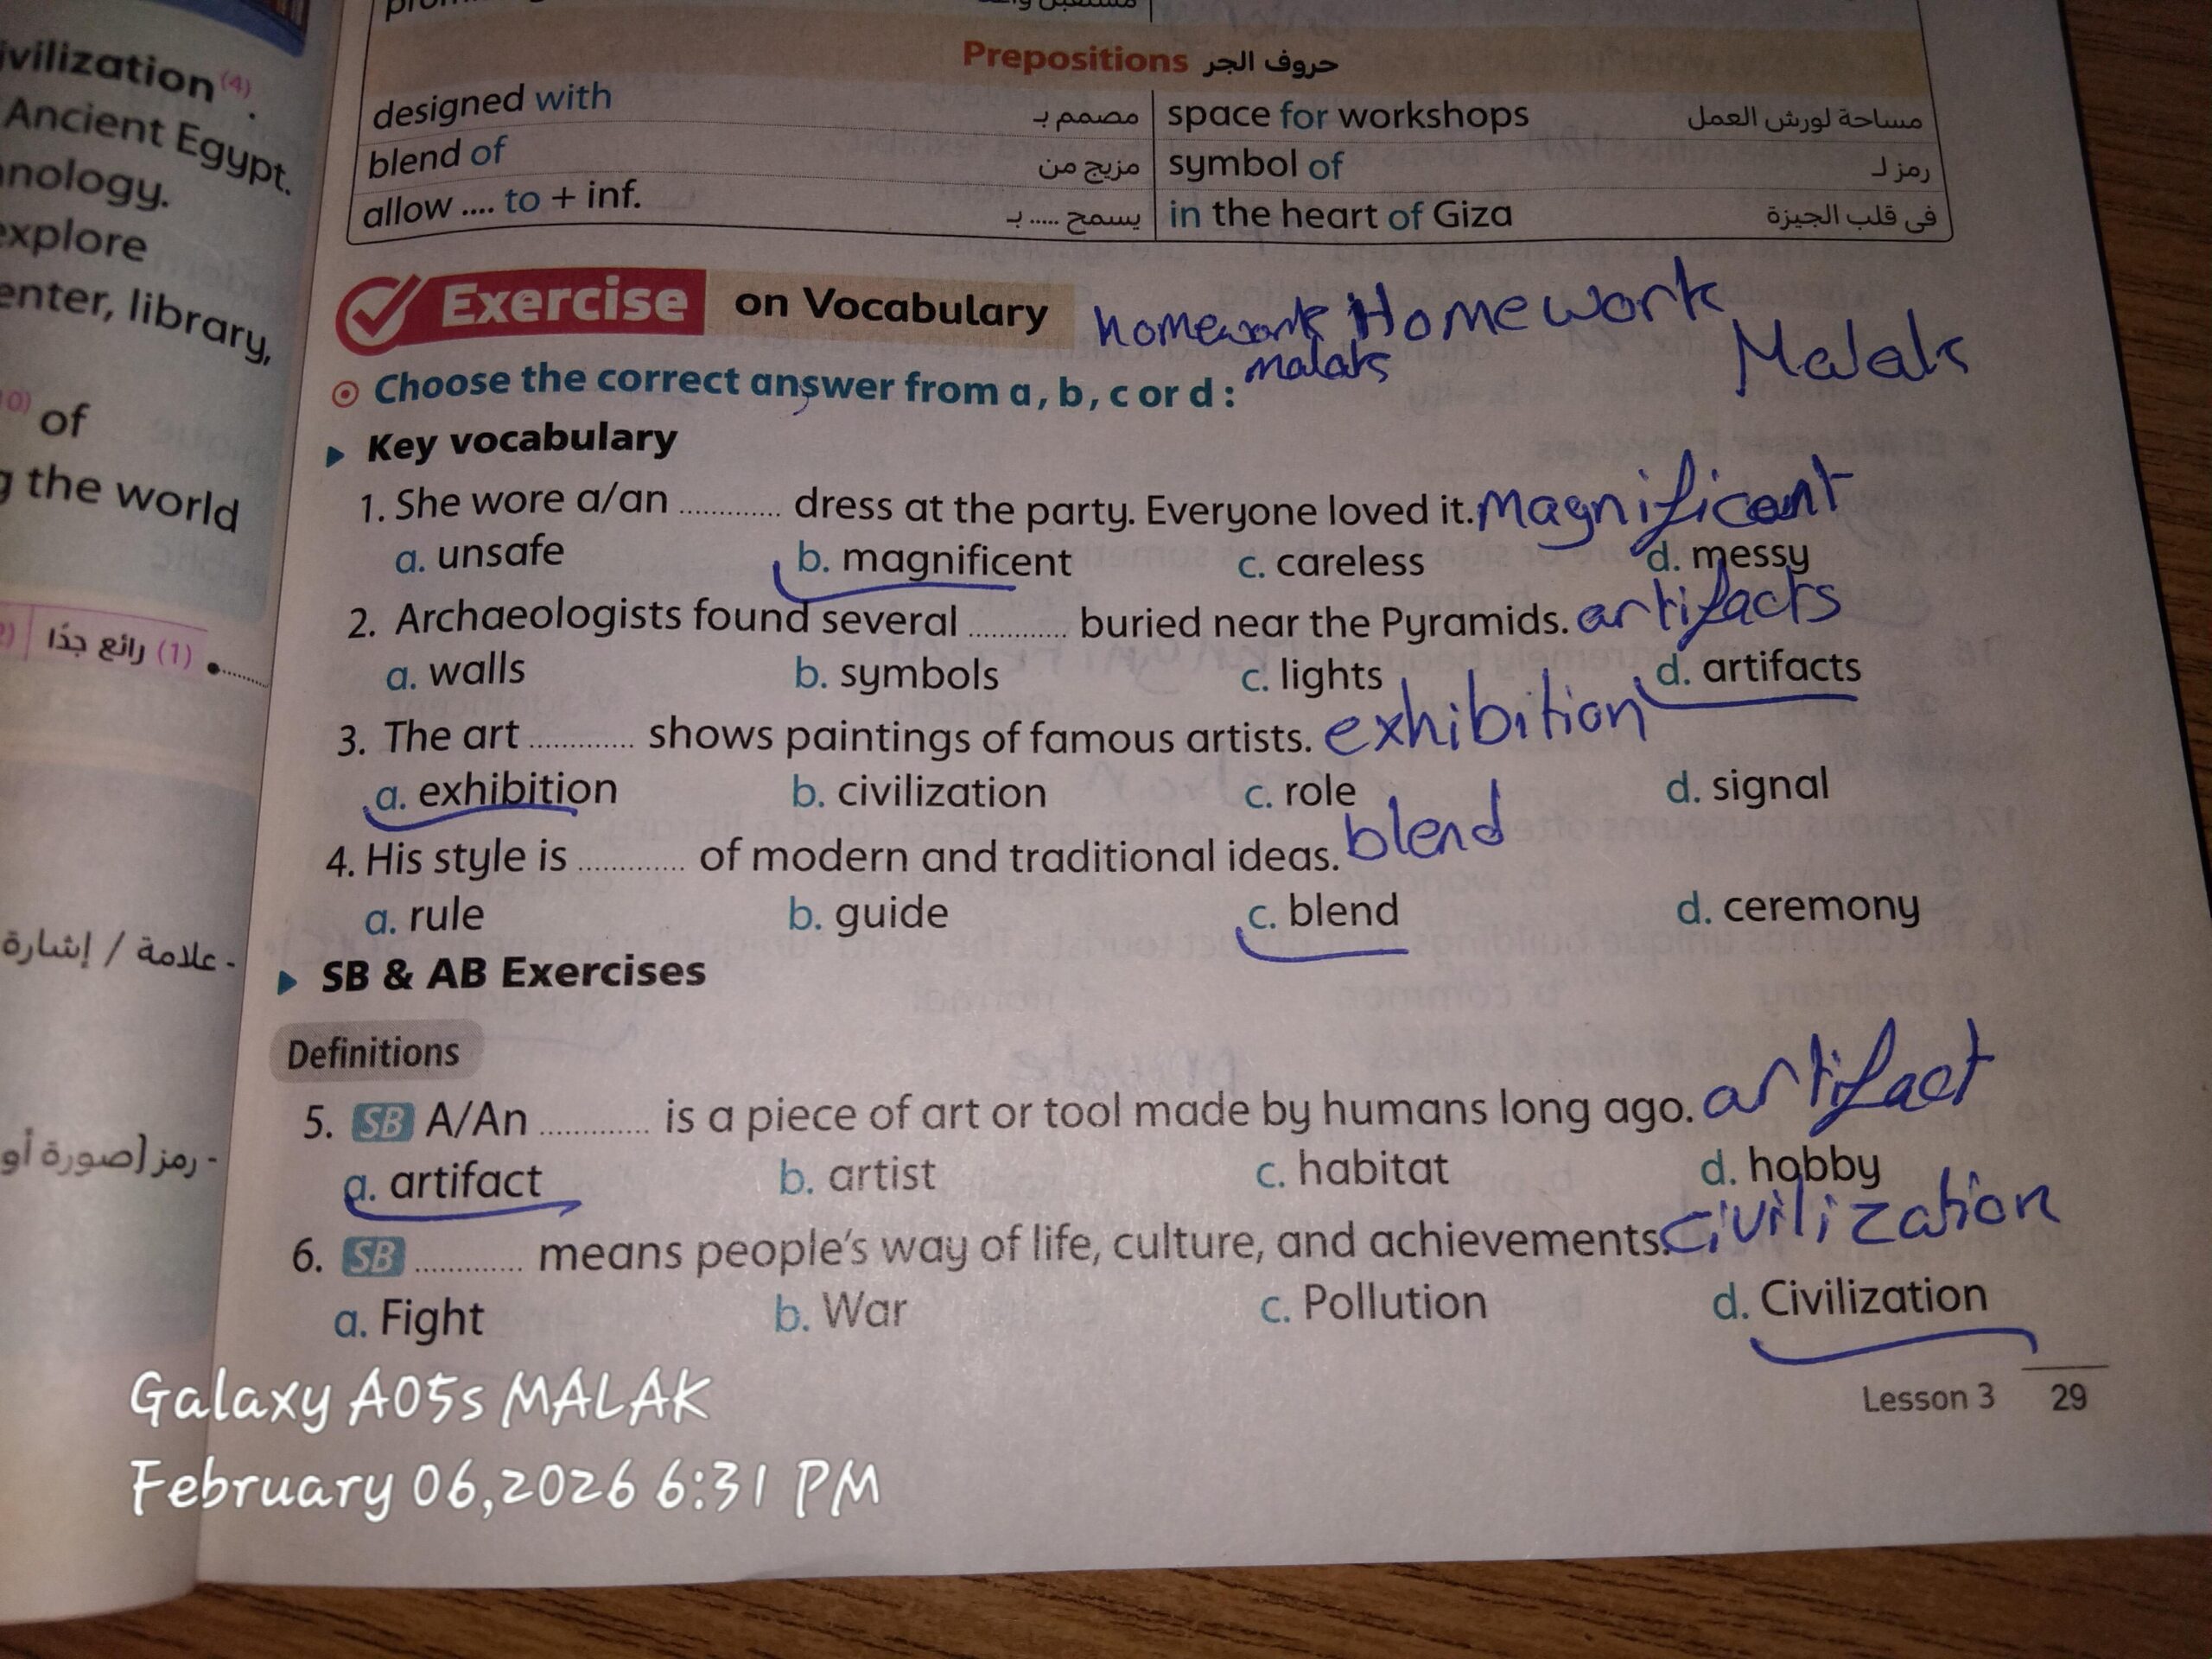 ivilization (4) .
Ancient Egypt.
nology.
explore
enter, library,
of
g the world
(1) رائع جدًا
- علامة / إشارة
- رمز (صورة أو
Prepositions حروف الجر
designed with مصمم بـ space for workshops مساحة لورش العمل
blend of مزيج من symbol of رمز لـ
allow .... to + inf. يسمح ..... بـ in the heart of Giza فى قلب الجيزة
Exercise on Vocabulary homework Homework
malak Malak
Choose the correct answer from a, b, c or d :
Key vocabulary
1. She wore a/an ............ dress at the party. Everyone loved it. magnificent
a. unsafe b. magnificent c. careless d. messy
2. Archaeologists found several ............ buried near the Pyramids. artifacts
a. walls b. symbols c. lights d. artifacts
3. The art ............ shows paintings of famous artists. exhibition
a. exhibition b. civilization c. role d. signal
4. His style is ............ of modern and traditional ideas. blend
a. rule b. guide c. blend d. ceremony
SB & AB Exercises
Definitions
5. SB A/An ............ is a piece of art or tool made by humans long ago. artifact
a. artifact b. artist c. habitat d. hobby
6. SB ............ means people's way of life, culture, and achievements. civilization
a. Fight b. War c. Pollution d. Civilization
Lesson 3 29
Galaxy A05s MALAK
February 06,2026 6:31 PM